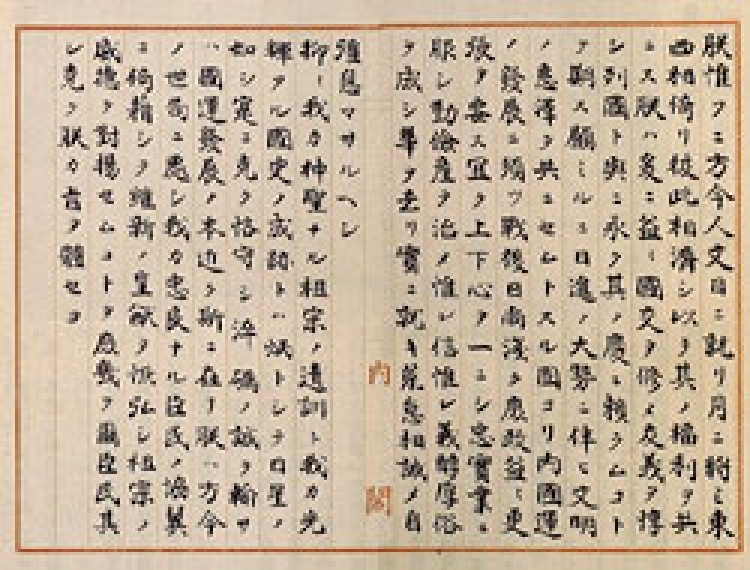 朕惟フニ方今人文日ニ就リ月ニ將ミ東
西相倚リ彼此相濟シ以テ其ノ福利ヲ共
ニス朕ハ爰ニ益〻國交ヲ修メ友義ヲ惇
シ列國ト與ニ永ク其ノ慶ニ賴ラムコト
ヲ期ス顧ミルニ日進ノ大勢ニ伴ヒ文明
ノ惠澤ヲ共ニセムトスル固ヨリ內國運
ノ發展ニ須ツ戰後日尙淺ク庶政益〻更
張ヲ要ス宜ク上下心ヲ一ニシ忠實業ニ
服シ勤儉產ヲ治メ惟レ信惟レ義醇厚俗
ヲ成シ華ヲ去リ實ニ就キ荒怠相誡メ自
內閣
彊息マサルヘシ
抑〻我カ神聖ナル祖宗ノ遺訓ト我カ光
輝アル國史ノ成跡トハ炳トシテ日星ノ
如シ寔ニ克ク恪守シ淬礪ノ誠ヲ輸サ
ハ國運發展ノ本近ク斯ニ在リ朕ハ方今
ノ世局ニ處シ我カ忠良ナル臣民ノ協翼
ニ倚藉シテ維新ノ皇猷ヲ恢弘シ祖宗ノ
威德ヲ對揚セムコトヲ庶幾フ爾臣民其
レ克ク朕カ旨ヲ體セヨ